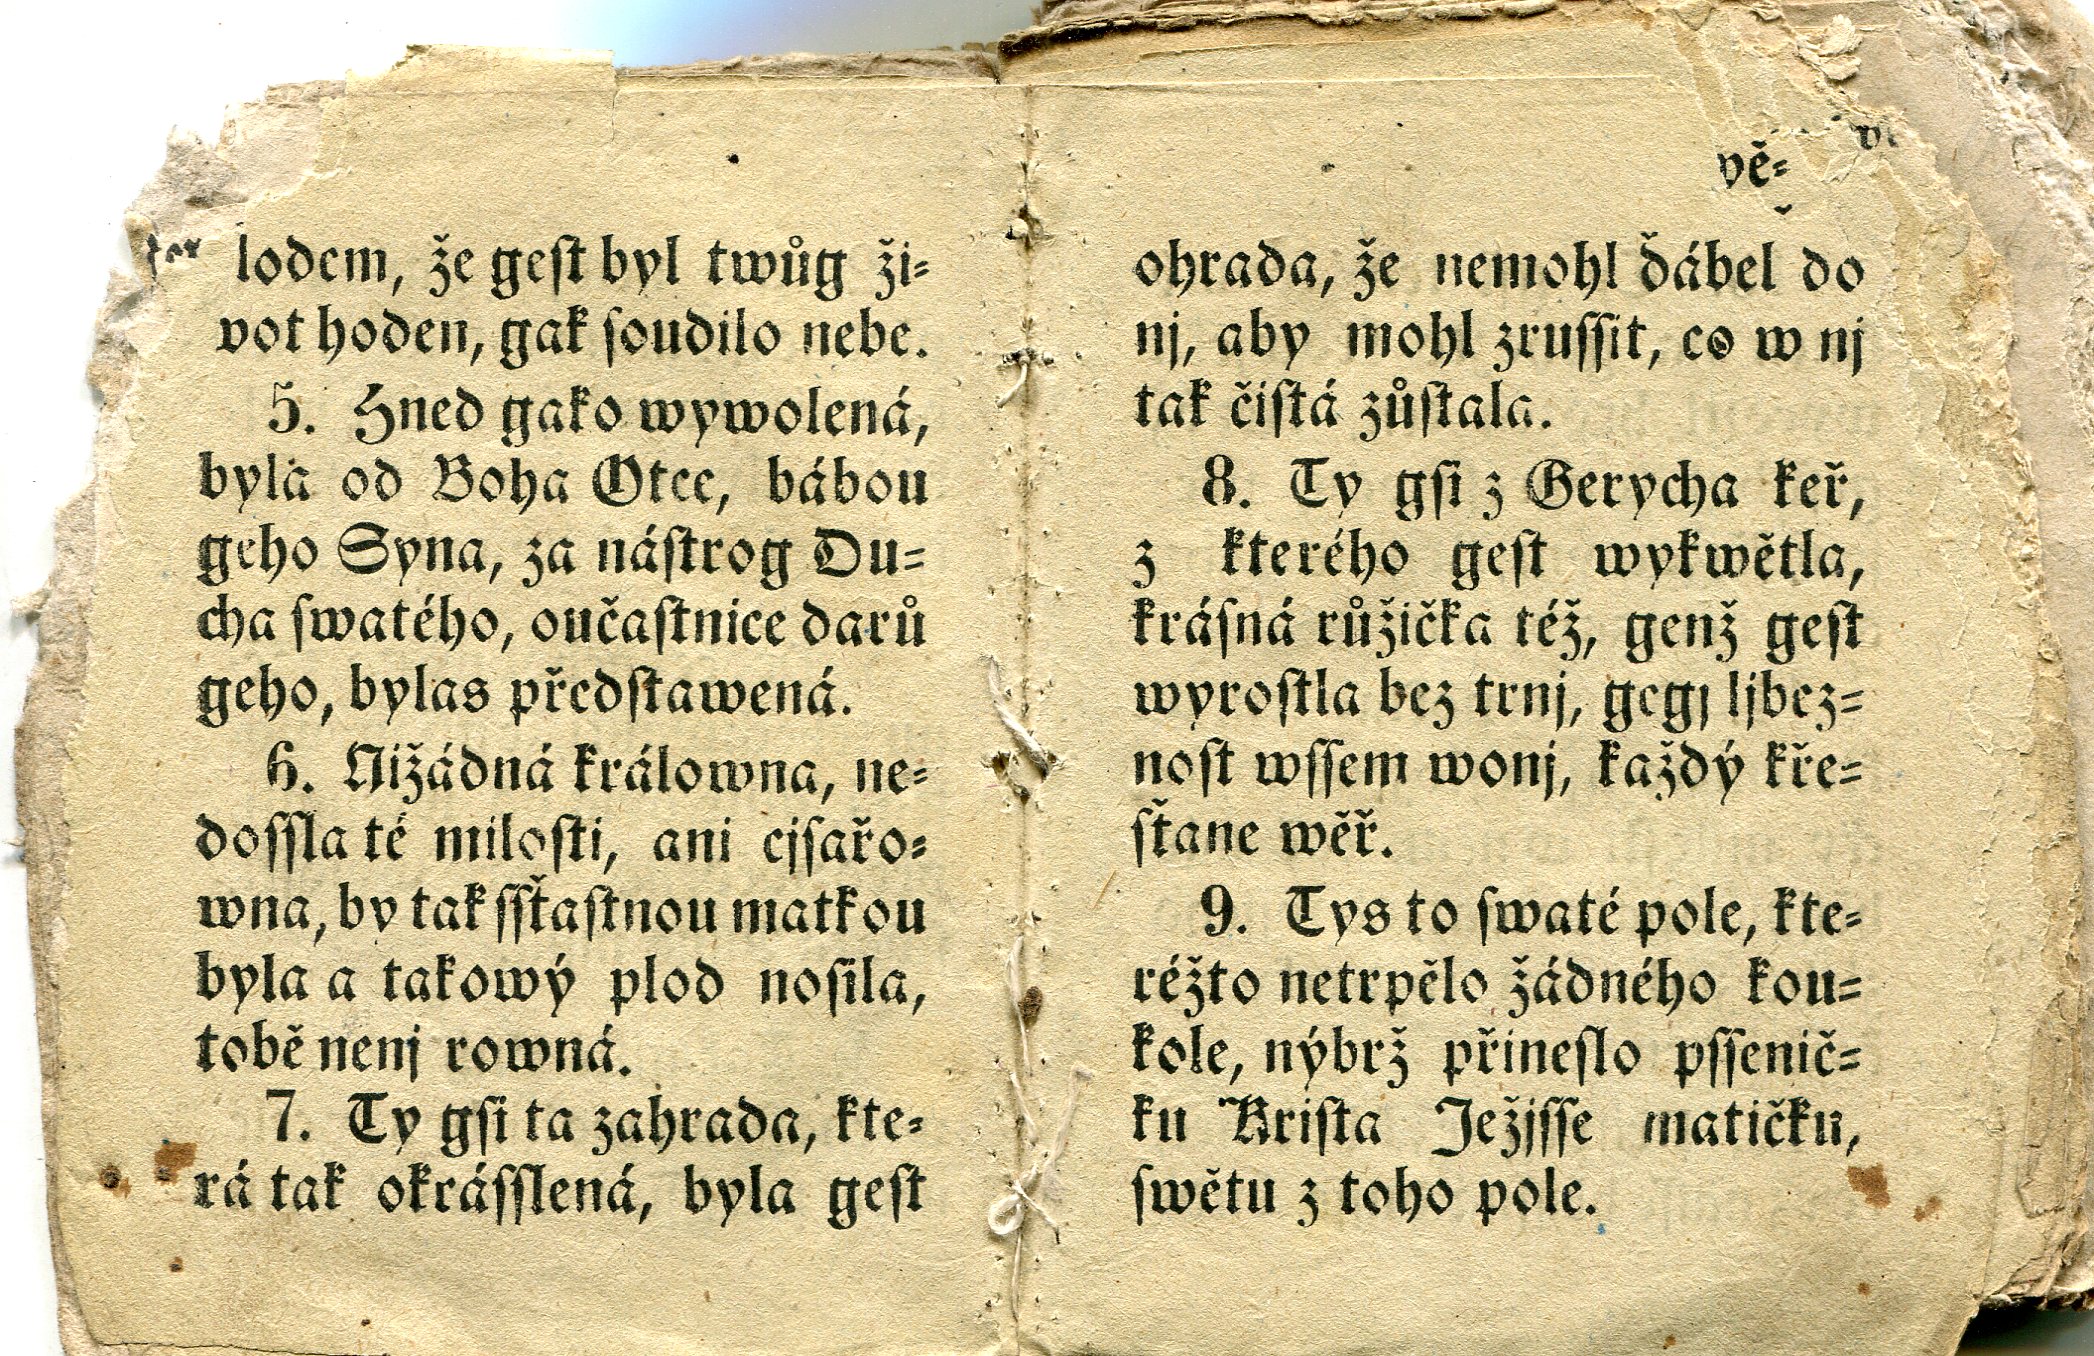 lodem, že geſt byl twůg ži⸗
vot hoden, gak ſoudilo nebe.
5. Hned gako wywolená,
byla od Boha Otce, bábou
geho Syna, za náſtrog Du⸗
cha ſwatého, oučaſtnice darů
geho, bylas předſtawená.
6. Nižádná králowna, ne⸗
doſſla té miloſti, ani cjſařo⸗
wna, by tak ſſťaſtnou matkou
byla a takowý plod noſila,
tobě nenj rowná.
7. Ty gſi ta zahrada, kte⸗
rá tak okráſſlená, byla geſt
vě⸗
ohrada, že nemohl ďábel do
nj, aby mohl zruſſit, co w nj
tak čiſtá zůſtala.
8. Ty gſi z Gerycha keř,
z kterého geſt wykwětla,
kráſná růžička též, genž geſt
wyroſtla bez trnj, gegj ljbez⸗
noſt wſſem wonj, každý kře⸗
ſťane wěř.
9. Tys to ſwaté pole, kte⸗
réžto netrpělo žádného kou⸗
kole, nýbrž přineſlo pſſenič⸗
ku Kriſta Ježjſſe matičku,
ſwětu z toho pole.